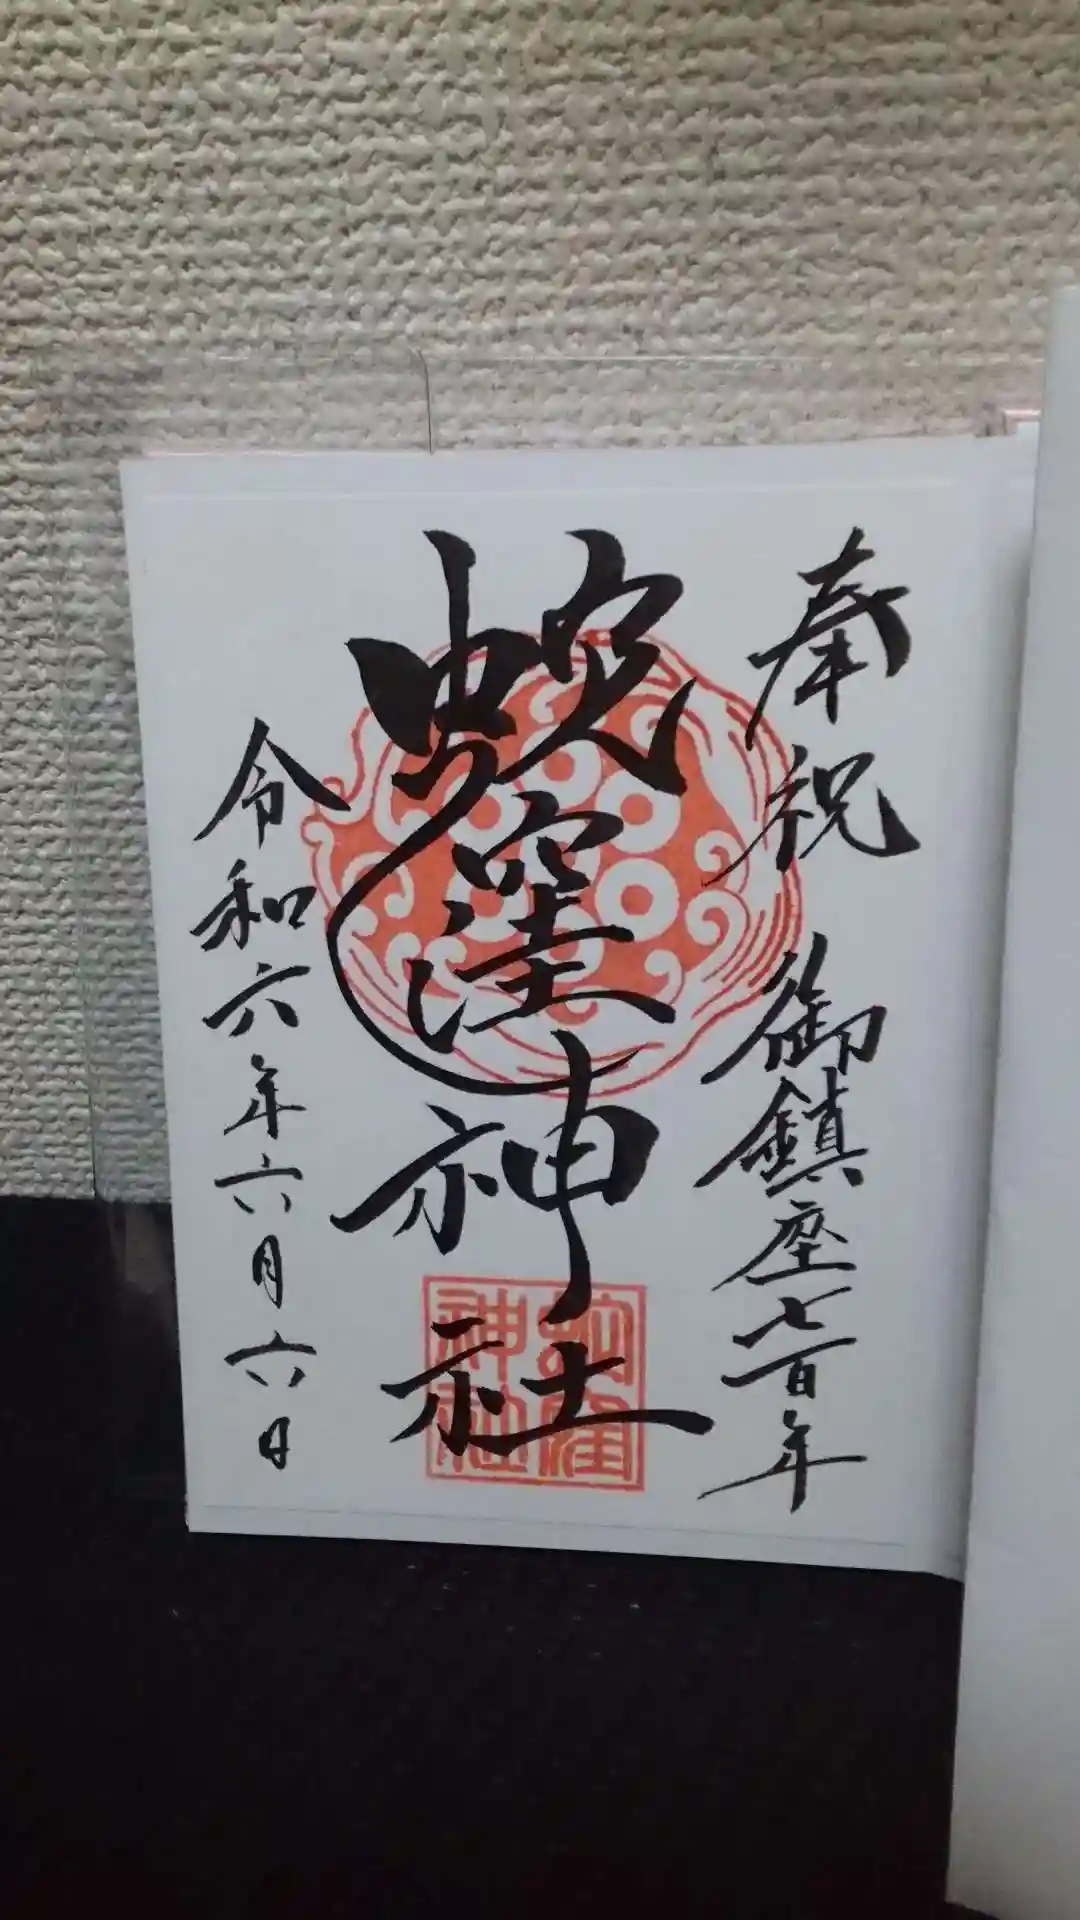 奉祝 御鎮座七百年
蛇窪神社
蛇窪
神社
令和六年六月六日